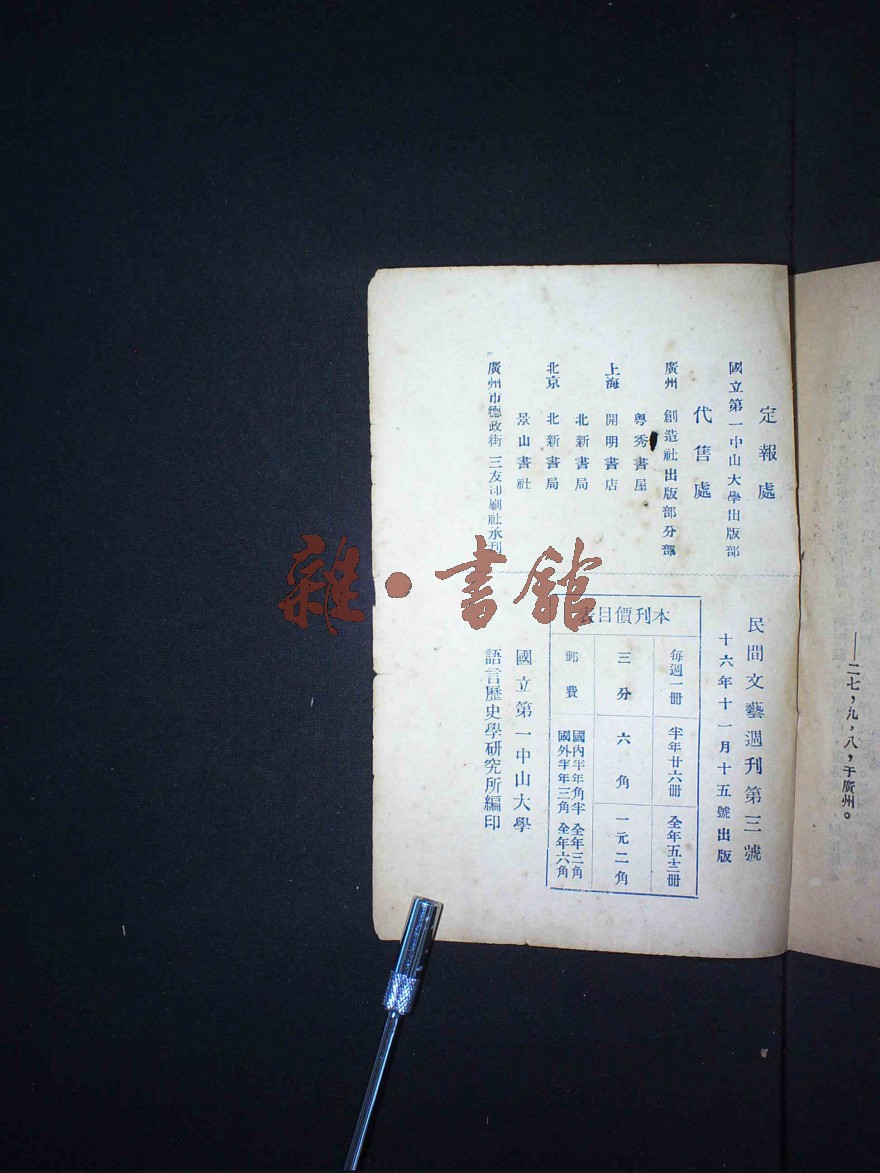 ——二七，九，八，于廣州。
定報處
國立第一中山大學出版部
代售處
廣州 創造社出版部分部
粤秀書屋
上海 開明書店
北新書局
北京 北新書局
景山書社
廣州市德政街三友印刷社承刊
民間文藝週刊第三號
十六年十一月十五號出版
本刊價目表
每週一册 半年廿六册 全年五十二册
三分 六角 一元二角
郵費 國內半年角半 全年三角
國外半年三角 全年六角
國立第一中山大學
語言歷史學研究所編印
雜·書館